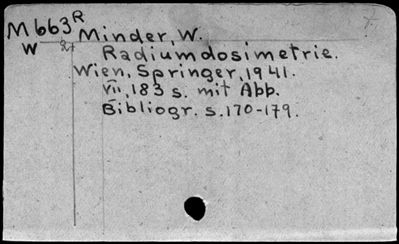 M663R Minder, W.
W Radiumdosimetrie.
Wien, Springer, 1941.
VII, 183 s. mit Abb.
Bibliogr. s. 170-179.